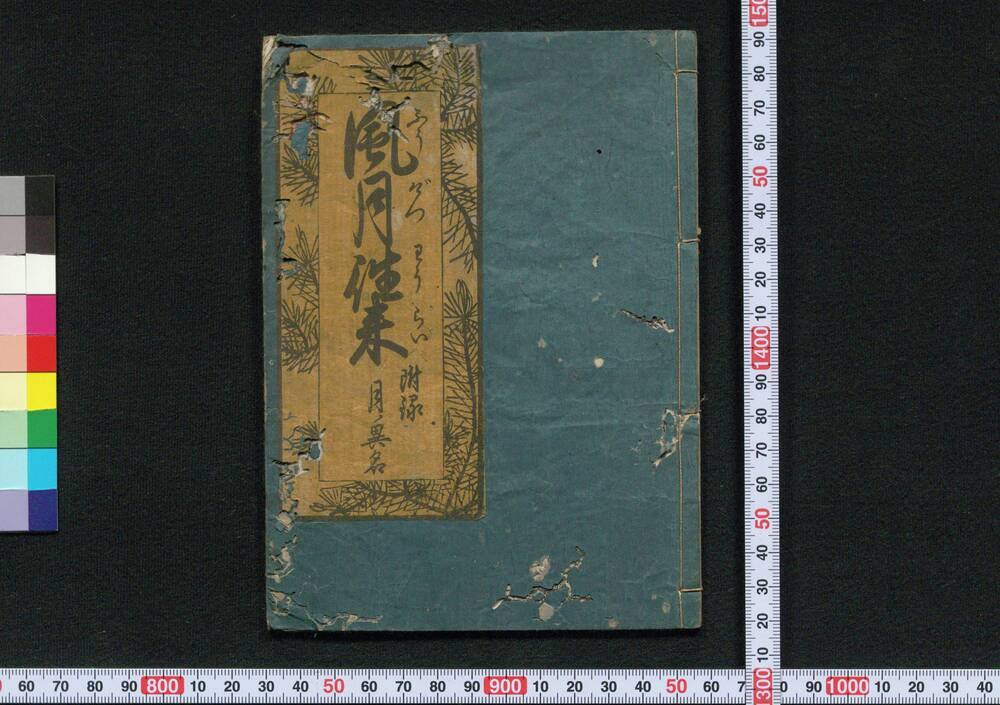 風月往来
ふうげつわうらい
附録
月異名
150
90
80
70
60
50
40
30
20
10
1400
90
80
70
60
50
40
30
20
10
1300
60 70 80 90 800 10 20 30 40 50 60 70 80 90 900 10 20 30 40 50 60 7 0 80 90 1000 10 20 30 40